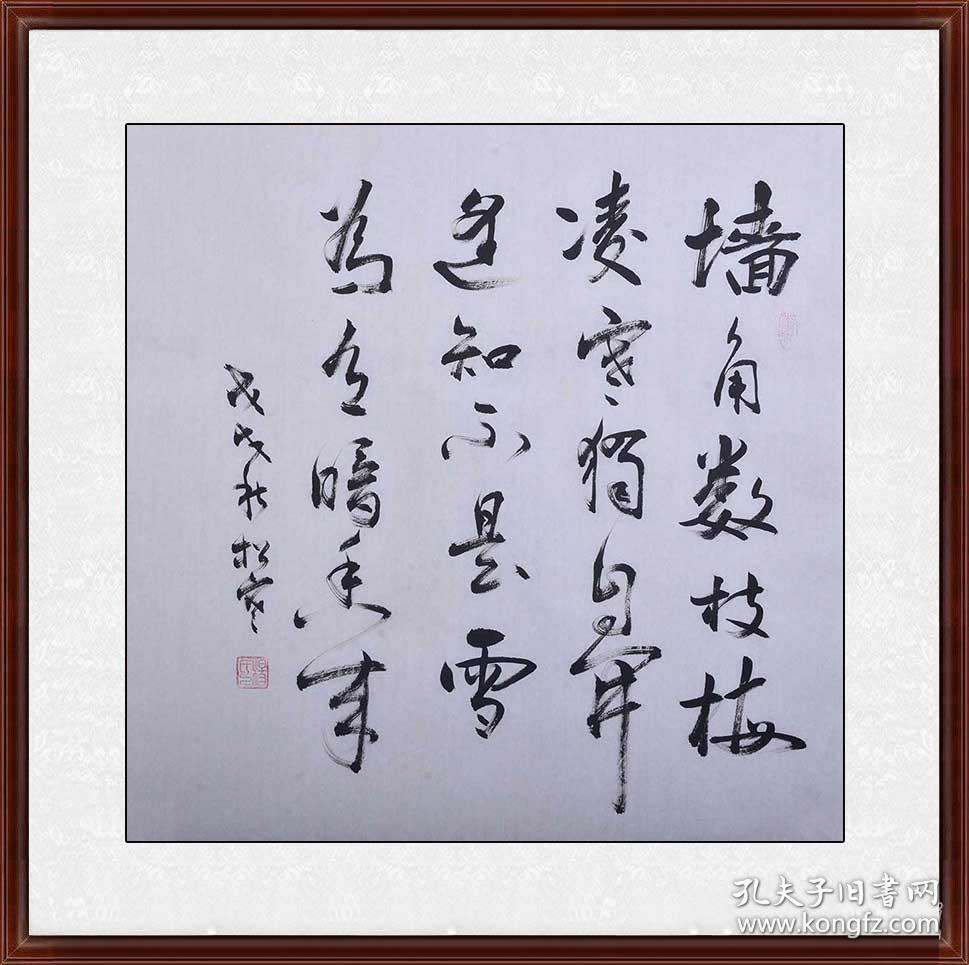 墙角数枝梅
凌寒獨自開
遥知不是雪
為有暗香来
戊戌秋松寒
孔夫子旧書网
www.kongfz.com